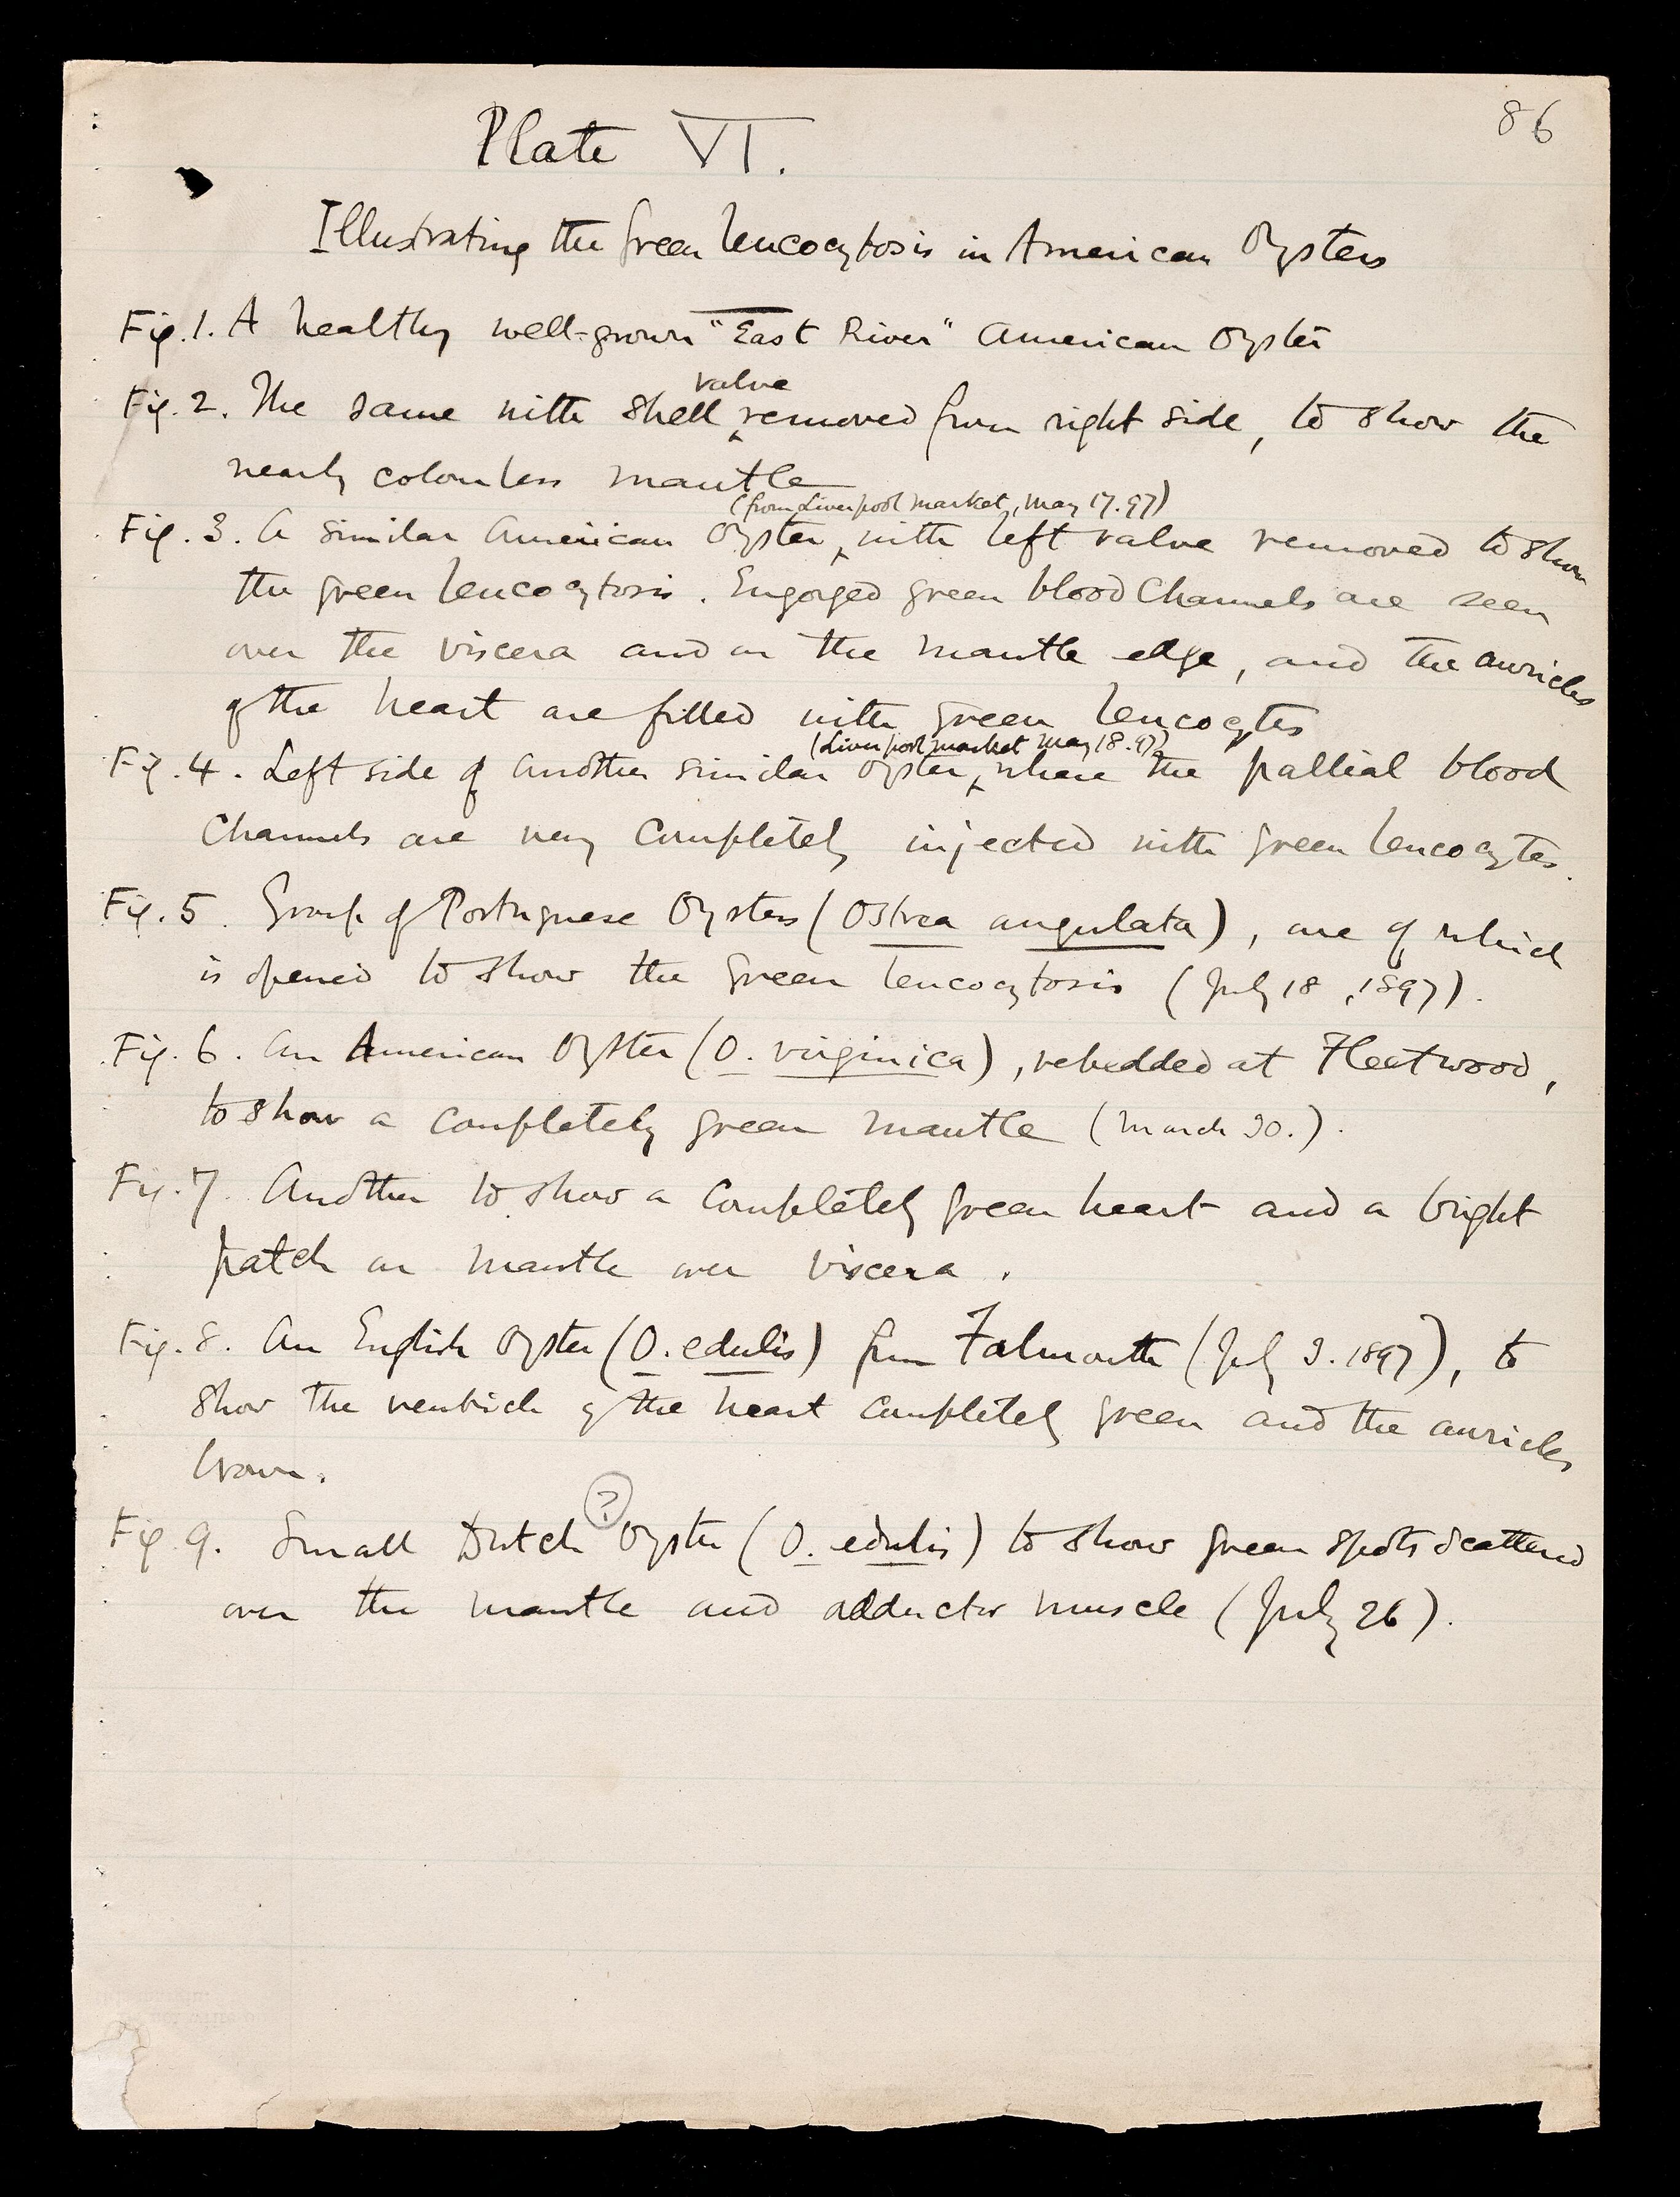 86
Plate VI.
Illustrating the green leucocytosis in American Oysters
Fig. 1. A healthy well-grown "East River" American Oyster
valve
Fig. 2. The same with shell removed from right side, to show the
nearly colourless mantle
(from Liverpool market, May 17. 97)
Fig. 3. A similar American Oyster, with left valve removed to show
the green leucocytosis. Engorged green blood channels are seen
over the viscera and on the mantle edge, and the auricles
of the heart are filled with green leucocytes
(Liverpool market May 18. 97)
Fig. 4. Left side of another similar oyster, where the pallial blood
channels are very completely injected with green leucocytes.
Fig. 5. Group of Portuguese Oysters (Ostrea angulata), one of which
is opened to show the green leucocytosis (July 18, 1897).
Fig. 6. An American Oyster (O. virginica), rebedded at Fleetwood,
to show a completely green mantle (March 30.).
Fig. 7. Another to show a completely green heart and a bright
patch on mantle over viscera.
Fig. 8. An English oyster (O. edulis) from Falmouth (July 3. 1897), to
show the ventricle of the heart completely green and the auricles
brown.
?
Fig. 9. Small Dutch Oyster (O. edulis) to show green spots scattered
over the mantle and adductor muscle (July 26).